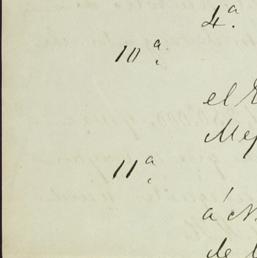 4.ª
10.ª
el
Me
11.ª
á
de